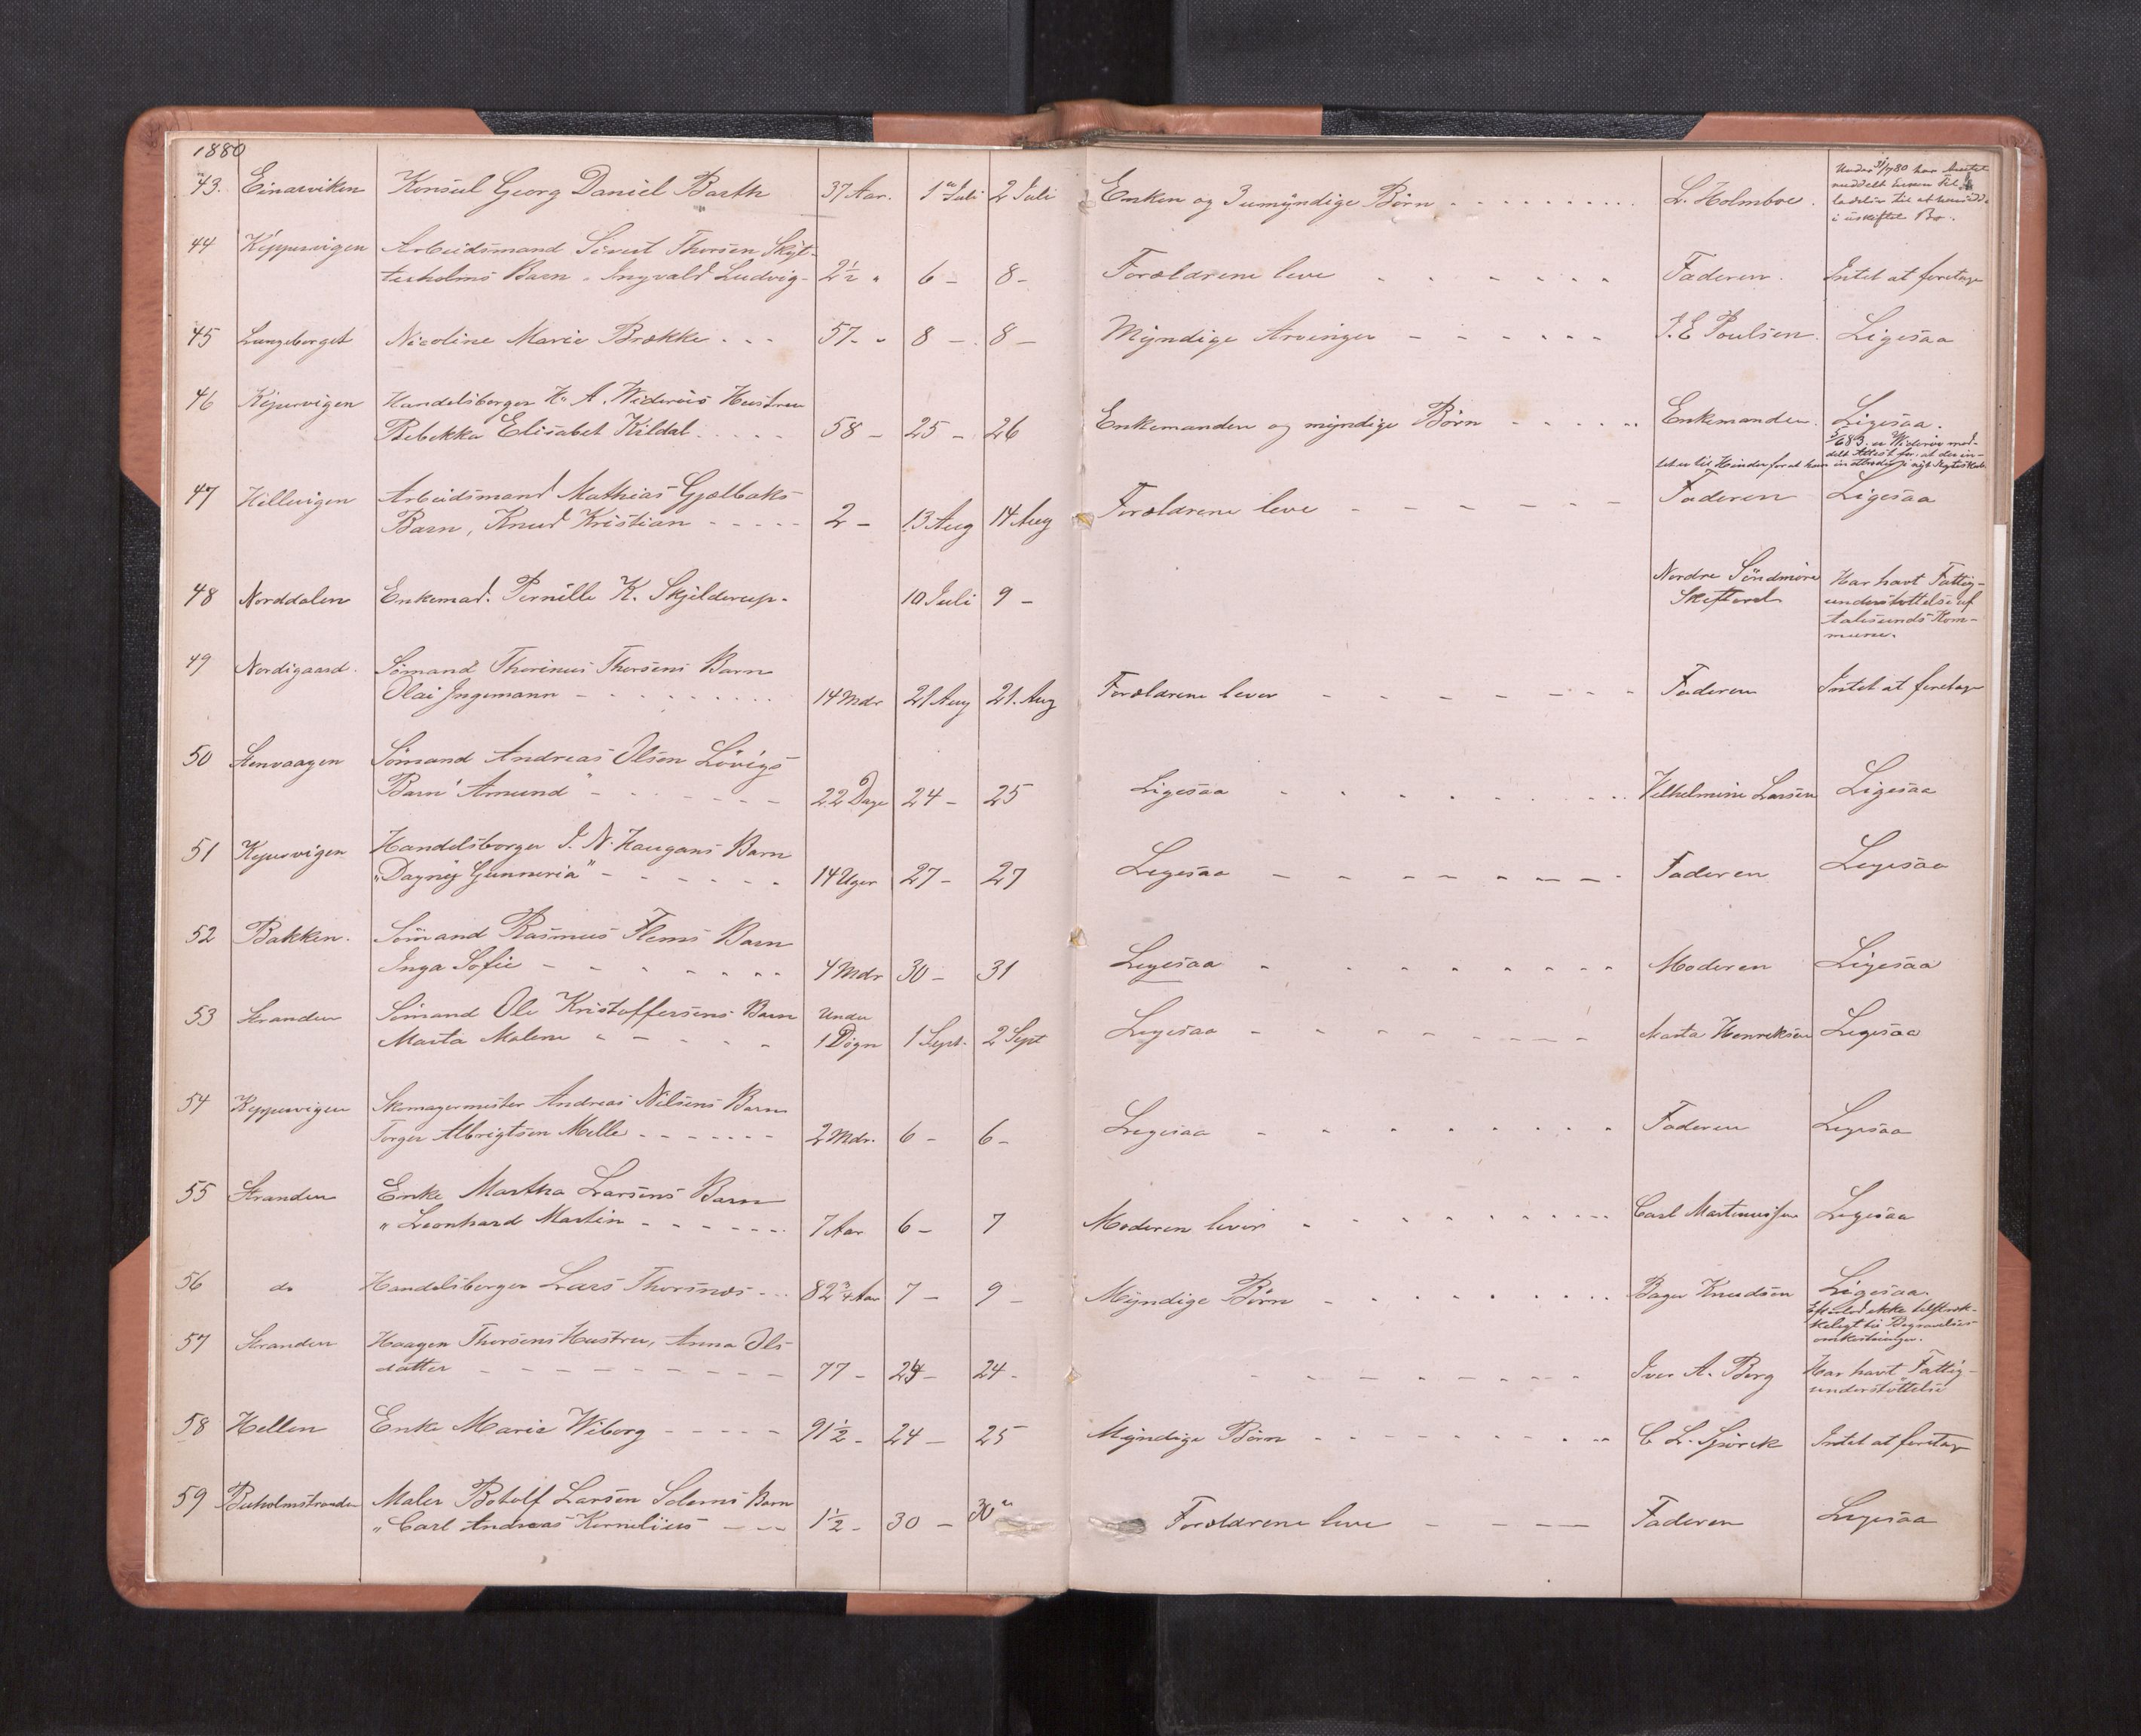 1880
43. Einarviken Konsul Georg Daniel Barth 37 Aar. 1 Juli 2 Juli Enken og 3 umyndige Børn L. Holmboe. Under 31/7 80 har
meddelt Enken Til-
ladelse til at hensidde
i uskiftet Bo.
44 Kippervigen Arbeidsmand Sivert Thorsen Skyt-
terholms Barn Ingvald Ludvig 2½ " 6 - 8 - Forældrene leve Faderen. Intet at foretage
45 Lungeborget Nicoline Marie Brække 57 - 8 - 8 - Myndige Arvinger J. E. Poulsen. Ligesaa
46 Kipervigen Handelsborger H. A. Widerøes Hustru
Rebekka Elisabet Kildal 58 - 25 - 26 Enkemanden og myndige Børn Enkemanden. Ligesaa.
5/6 83 er Widerøe med-
delt Attest for at der in-
tet er til Hinder for at han indtræder i nyt Ægteskab
47 Hellevigen Arbeidsmand Mathias Gjælbaks
Barn, Knud Kristian 2 - 13 Aug 14 Aug Forældrene leve Faderen Ligesaa
48 Norddalen Enkemad. Pernille K. Skjelderup. 10 Juli 9 - Nordre Söndmöre
Skifteret Har havt Fattig-
understøttelse af
Aalesunds Kom-
mune.
49 Nordigaard. Sömand Thorinus Thorsens Barn
Olai Ingemann 14 Mdr 21 Aug 21. Aug Forældrene lever Faderen Intet at foretage
50 Stenvaagen Sömand Andreas Olsen Lövigs
Barn "Amund" 22 Dage 24 - 25 Ligesaa Vilhelmine Larsen Ligesaa
51 Kipervigen Handelsborger J. N. Haugans Barn
"Dagny Gunneria" 14 Uger 27 - 27 Ligesaa Faderen Ligesaa
52 Bakken. Sömand Rasmus Flems Barn
Inga Sofie 4 Mdr 30 - 31 Ligesaa Moderen Ligesaa
53 Stranden Sömand Ole Kristoffersens Barn Under
Marta Malene 1 Dögn 1 Sept. 2 Sept Ligesaa Marta Henriksen Ligesaa
54 Kippervigen Skomagermester Andreas Nilsens Barn
Torger Albrigtsen Melle 2 Mdr. 6 - 6 - Ligesaa Faderen Ligesaa
55 Stranden Enke Martha Larsens Barn
"Leonhard Martin 7 Aar 6 - 7 Moderen lever Carl Martinussen Ligesaa
56 do Handelsborger Lars Thorsnæs 82¾ Aar 7 - 9 - Myndige Børn Bager Knudsen Ligesaa.
Efterlod ikke tilstræk-
keligt til Begravelses-
omkostninger.
57 Stranden Haagen Thorsens Hustru, Anna Ols-
datter 77 - 24 - 24 - Iver A. Berg Har havt Fattig-
understöttelse
58 Hellen Enke Marie Wiborg 91½ - 24 - 25 Myndige Børn C. L. Spörck Intet at foretage
59 Buholmstranden Maler Botolf Larsen Solems Barn
"Carl Andreas Kornelius 1½ - 30 - 30 Forældrene leve Faderen Ligesaa